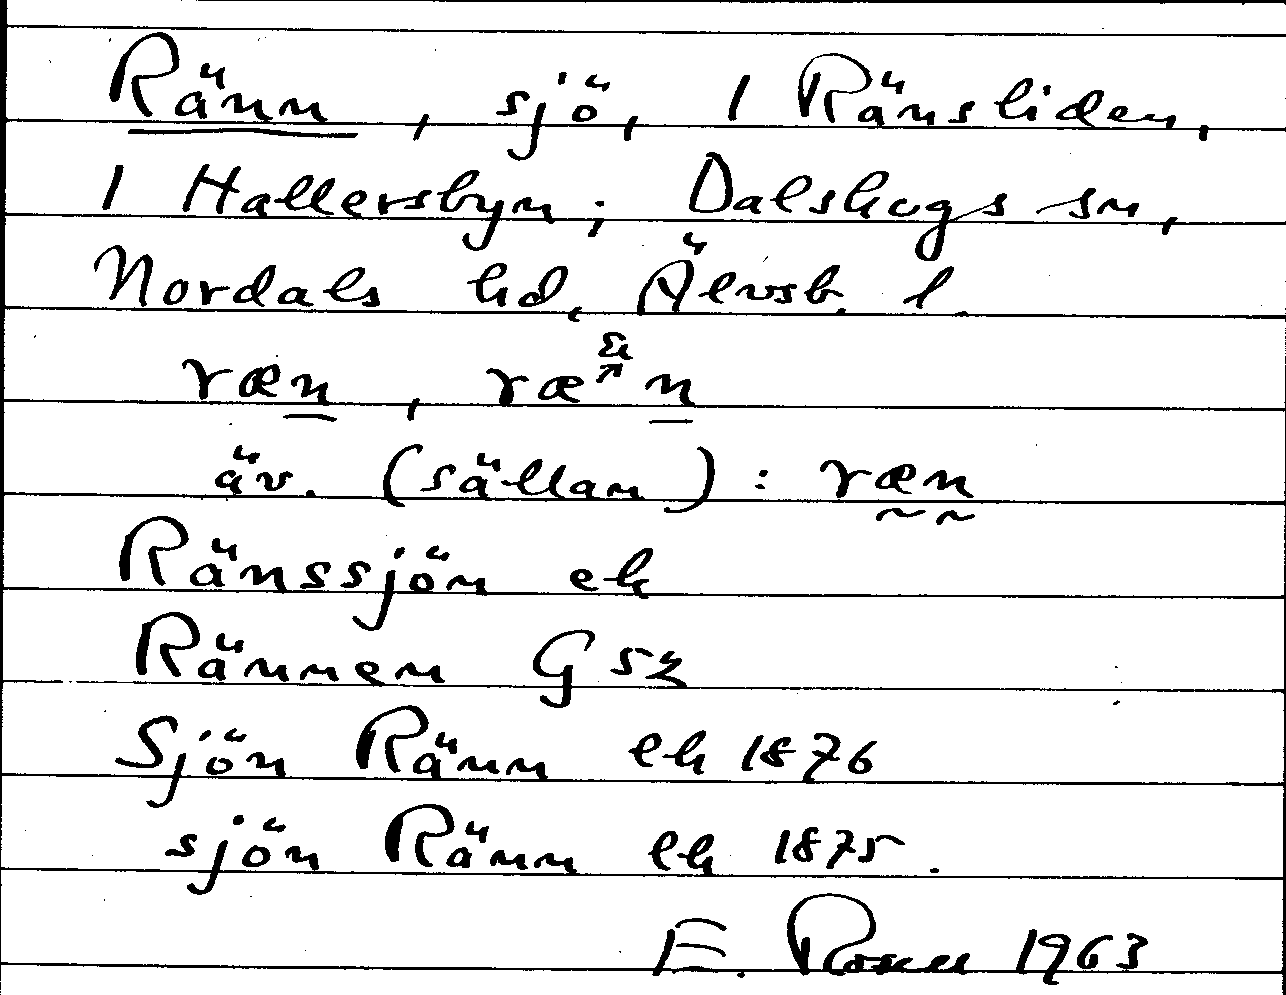 Ränn, sjö, 1 Ränsliden,
1 Hallersbyn; Dalskogs sn,
Nordals hd, Älvsb. l.
ræn, ræn
äv. (sällan): ræn
Ränssjön ek
Rännen G 52
Sjön Ränn ek 1876
sjön Ränn ek 1875.
E. Rosell 1963